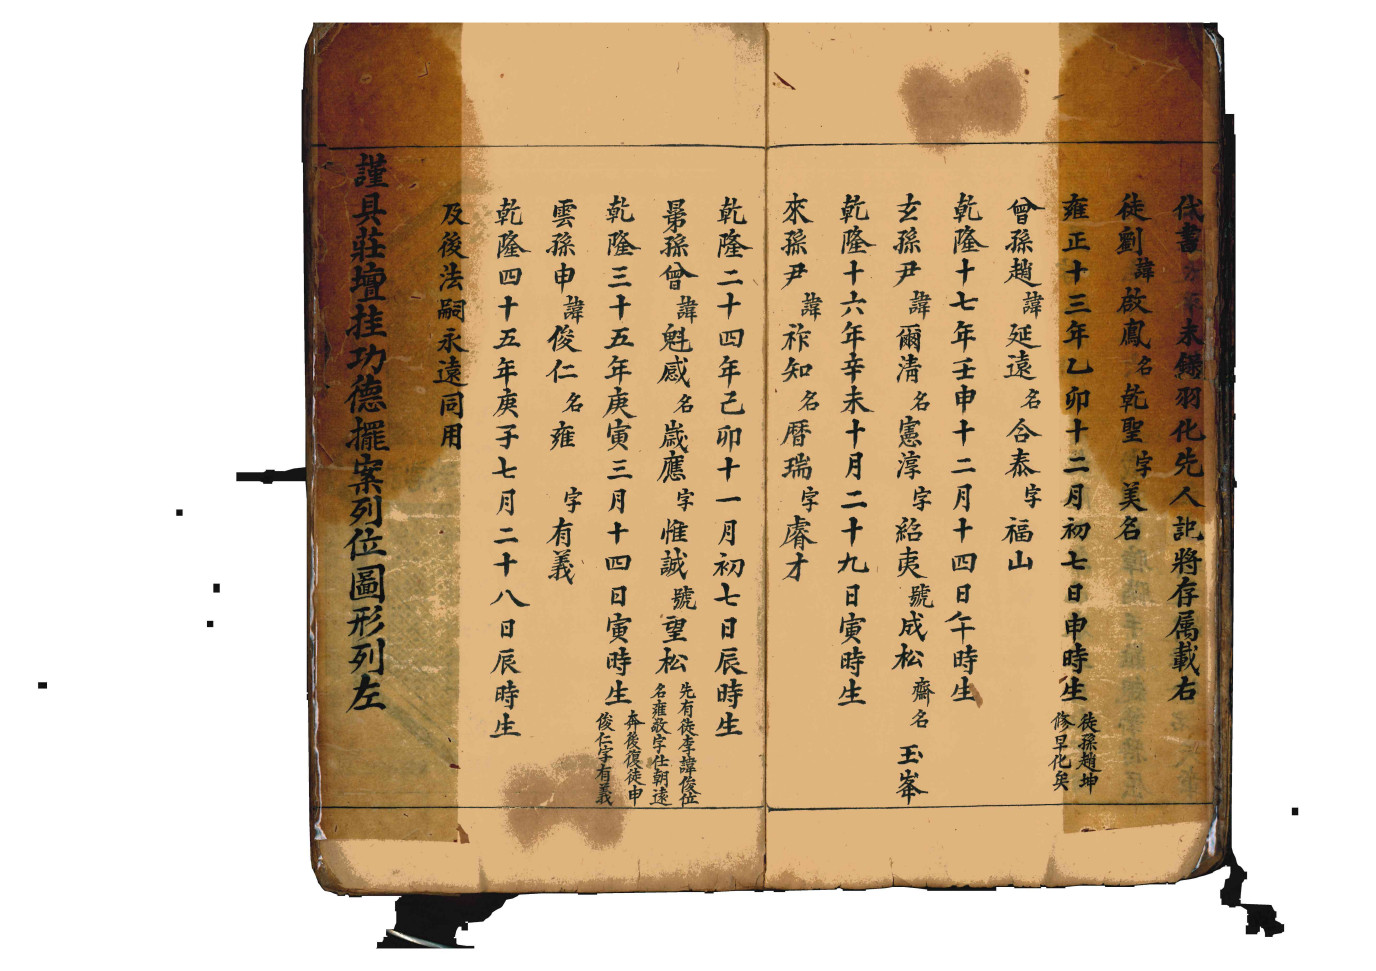 代書 未錄羽化先人記將存属載右
徒劉諱啟鳳名乾聖字美名
雍正十三年乙卯十二月初七日申時生徒孫趙坤
修早化矣
曾孫趙諱延遠名合泰字福山
乾隆十七年壬申十二月十四日午時生
玄孫尹諱爾清名憲淳字紹夷號成松齋名玉峯
乾隆十六年辛未十月二十九日寅時生
來孫尹諱祚知名曆瑞字睿才
乾隆二十四年己卯十一月初七日辰時生
晜孫曾諱魁感名嵗應字惟誠號望松先有徒李諱俊位
名雍敬字仕朝遠
乾隆三十五年庚寅三月十四日寅時生奔後復徒申
俊仁字有義
雲孫申諱俊仁名雍字有義
乾隆四十五年庚子七月二十八日辰時生
及後法嗣永遠同用
謹具莊壇挂功德擺案列位圖形列左